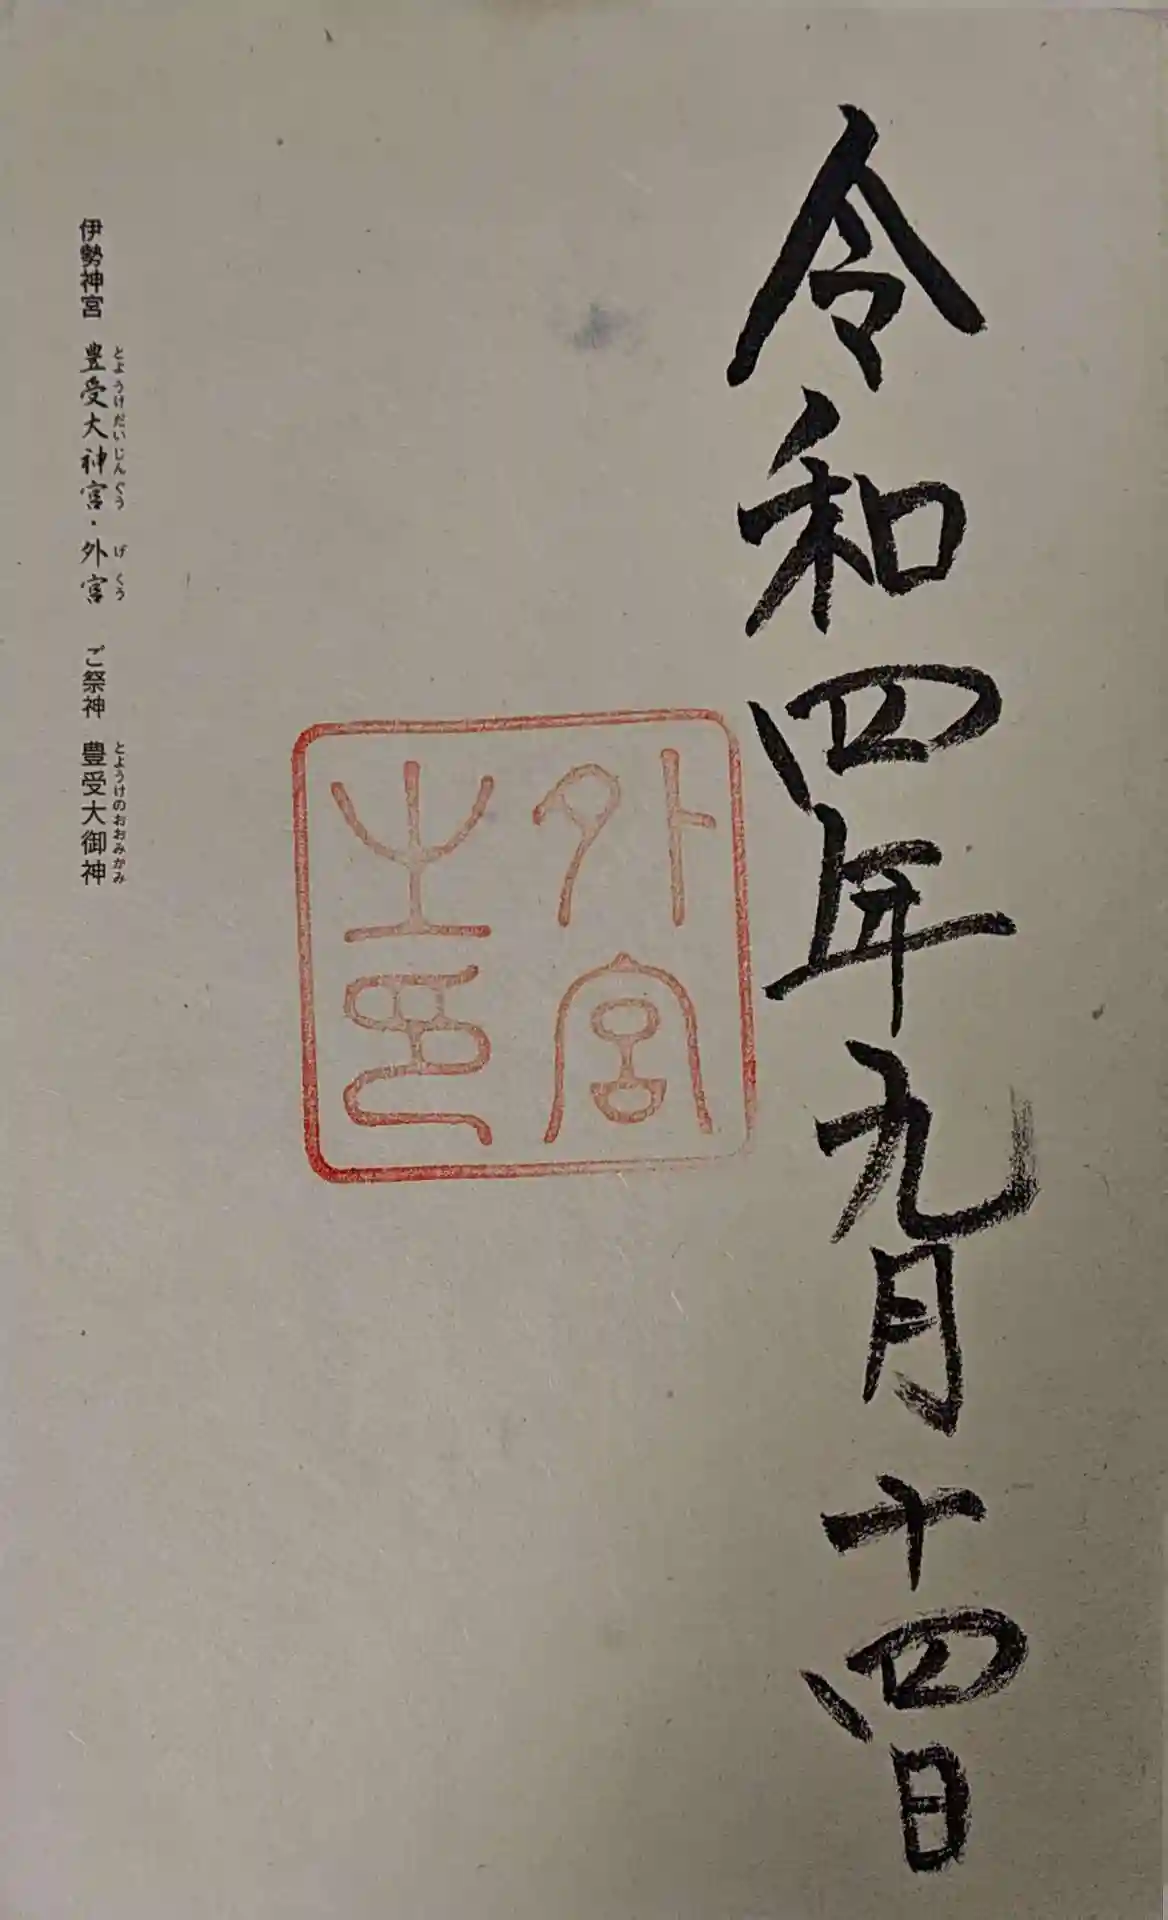 令和四年九月十四日
外宮
之印
伊勢神宮 豊受大神宮・外宮 ご祭神 豊受大御神
とようけだいじんぐう げくう とようけのおおみかみ